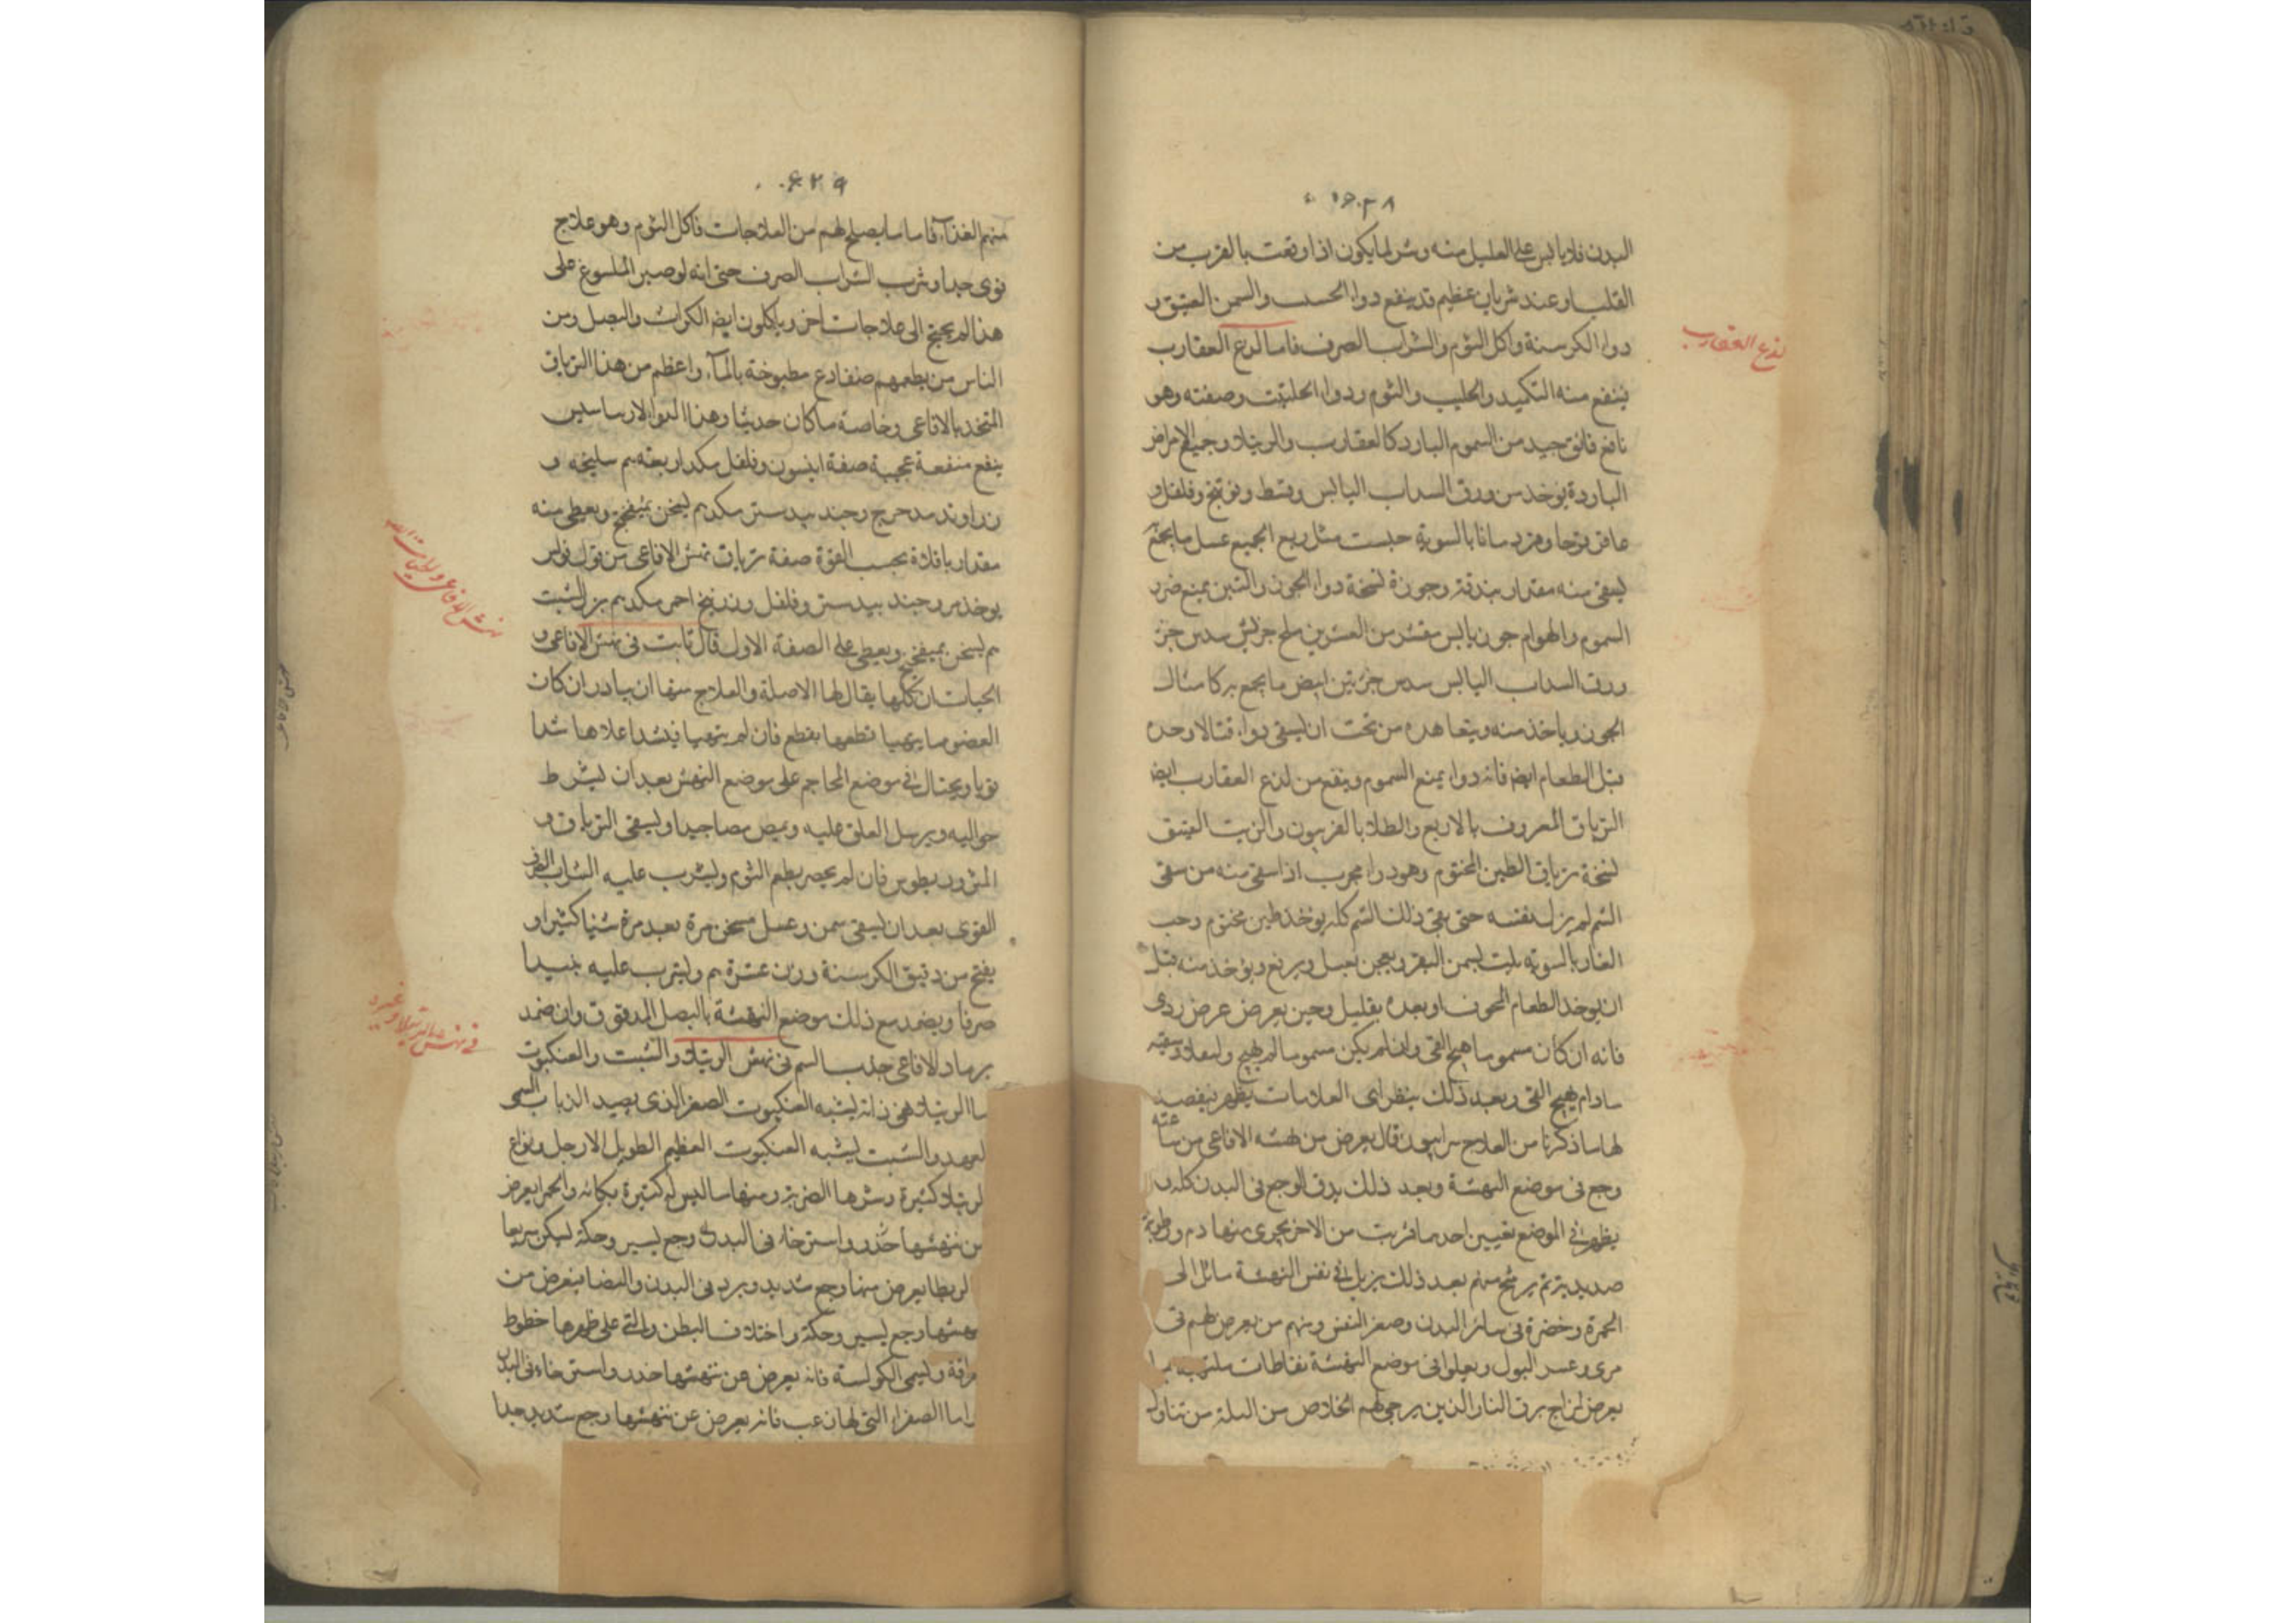 البدن فلا باس على العليل منه وشر ما يكون اذا وقعت بالقرب من
القلب او عند شريان عظيم قد ينفع دواء الحسب والسمن العتيق و
دواء الكرسنة واكل الثوم والشراب الصرف فاما لدغ العقارب
لدغ العقارب
ينتفع منه التكميد والحليب والثوم ودواء الحلتيت وصفته وهو
نافع فائق جيد من السموم البارد كالعقارب والرتيلا وجميع الامراض
الباردة يوخذ من ورق السداب اليابس وقسط وفوتنج وفلفل و
عاقرقرحا ومر بالسوية حلتيت مثل ربع الجميع عسل ما يجمع
يسقى منه مقدار بندقة وجوزة نسخة دواء الجوز والتين يمنع ضرر
السموم والهوام جوز يابس مقشر من القشرين ملح جزئين سدس جزء
ورق السداب اليابس سدس جزء تين ابيض ما يجمع بركا مثال
الجوز وياخذ منه ويتعاهده من تخت ان يسقى دواء قتالا وحده
قبل الطعام ايضا فانه دواء يمنع السموم وينفع من لدغ العقارب ايضا
الترياق المعروف بالاربع والطلا بالفربيون والزيت العتيق
نسخة ترياق الطين المختوم وهو دواء مجرب اذا سقى منه من سقى
السم لم يزل نفسه حتى يقئ ذلك السم كله يوخذ طين مختوم وحب
الغار بالسوية يلت بسمن البقر ويعجن بعسل ويرفع ويؤخذ منه قبل
ان يوخذ الطعام المخوف او بعده بقليل وحين يعرض عرض ردى
فانه ان كان مسموما هيج القئ وان لم يكن مسموما لم يهيج وليعاود سقيه
مادام يهيج القئ وبعد ذلك ينظر اى العلامات يظهر فيقصد
لها ما ذكرنا من العلاج سرابيون قال يعرض من نهشة الافاعى من ساعته
وجع فى موضع النهشة وبعد ذلك يدق الوجع فى البدن كله و
يظهر فى الموضع ثقبين احدهما قريب من الاخر يجرى منها دم ورطوبة
صديدية ثم يرشح منهم بعد ذلك يزيل فى نفس النهشة مائل الى
الحمرة وخضرة فى سائر البدن وصغر النفس ومنهم من يعرض لهم قئ
مرى وعسر البول ويعلوا فى موضع النهشة نفاطات ملتهبة
يعرض لمزاج برق النار الذين يرجى لهم الخلاص من البلة من تناول
۶۲۹
منهم الغذاء فاما ما يصلح لهم من العلاجات فاكل الثوم وهو علاج
قوى جدا وشرب الشراب الصرف حتى انه لو صبر الملسوع على
هذا لم يحتج الى علاجات اخر وياكلون ايضا الكراث والبصل ومن
الناس من يطعمهم ضفادع مطبوخة بالماء واعظم من هذا الترياق
المتخذ بالافاعى وخاصة ما كان حديثا وهذا الدواء لارساسيس
ينفع منفعة عجيبة صفة انيسون وفلفل مكد اربعة سليخه و
زراوند مدحرج وجند بيدستر مكد يعجن بميفختج ويعطى منه
مقدار باقلاة بحسب القوة صفة ترياق نهش الافاعى من قول فولس
نهش الافاعى والحيات
يوخذ مر وجند بيدستر وفلفل وزرنيخ احمر مكد بزر الشبت
يسخن بميفختج ويعطى على الصفة الاولى قال ثابت فى نهش الافاعى و
الحيات ان كلها يقال لها الاصلة والعلاج منها ان يبادر ان كان
العضو مما يتهيا قطعها يقطع فان لم يتهيا فيشد اعلاها شدا
قويا ويحتال فى موضع المحاجم على موضع النهش بعد ان يشرط
حواليه ويرسل العلق عليه ويمص مصا جيدا ويسقى الترياق و
المثروديطوس فان لم يحضر يطعم الثوم ويشرب عليه الشراب الصرف
القوى بعد ان يسقى سمن وعسل مسخن مرة بعد مرة شيا كثيرا و
يقمح من دقيق الكرسنة وزن عشرة ويشرب عليه نبيذا
صرفا ويضمد مع ذلك موضع النهشة بالبصل المدقوق وان ضمد
برماد الافاعى جذب السم فى نهش الرتيلا والشبث والعنكبوت
فى نهش الرتيلا وغيره
اما الرتيلا فهى دابة يشبه العنكبوت الصغير الذى يصيد الذباب المسمى
الفهد والشبث يشبه العنكبوت العظيم الطويل الارجل وانواع
الرتيلا كثيرة وشرها المصرية ومنها ما ليس له كثيرة نكائه والحمر يعرض
من نهشها خدر واسترخاء فى البدن ووجع يسير وحكة يسكن سريعا
الرقطا يعرض منها وجع شديد وبرد فى البدن والبيضا يعرض من
نهشها وجع يسير وحكة واختلاف البطن والتى على ظهرها خطوط
براقة ويسمى الكوكبية فانه يعرض من نهشها خدر واسترخاء فى البدن
واما الصفراء التى لها زغب فانه يعرض عن نهشها وجع شديد جدا